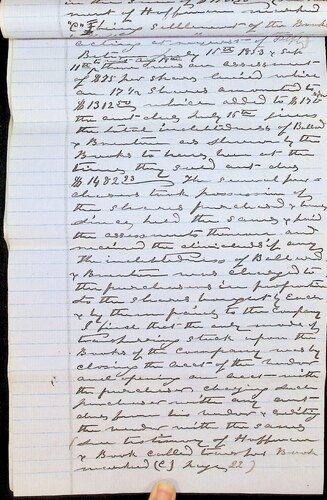 ment of Hoffman marked
"C" being Settlement of the Book
Between July 15th 1863 & Sale
there was an assessment
of $75 per share levied which
on 17½ Shares amounted to
$1312 50 which added to $170
the amt due July 15th gives
the total indebtedness of Ballard
& Brunton as shown by the
Books to have been at the
time they sold out
$1482 23 The several pur-
chasers took possession of
the shares purchased & have
since held the same & paid
the assessments thereon and
received the dividends if any
The indebtedness of Ballard
& Brunton was charged to
the purchasers in proportion
to the shares bought by Each
& by them paid to the Company
I find that the only mode of
transferring stock upon the
Books of the Company was by
closing the acct of the vendor
and opening an acct with
the purchaser, charging such
purchaser with any amt
due from his vendor & crediting
the vendor with the same
(See testimony of Hoffman
& Book called transfer Book
marked (C) page 22)